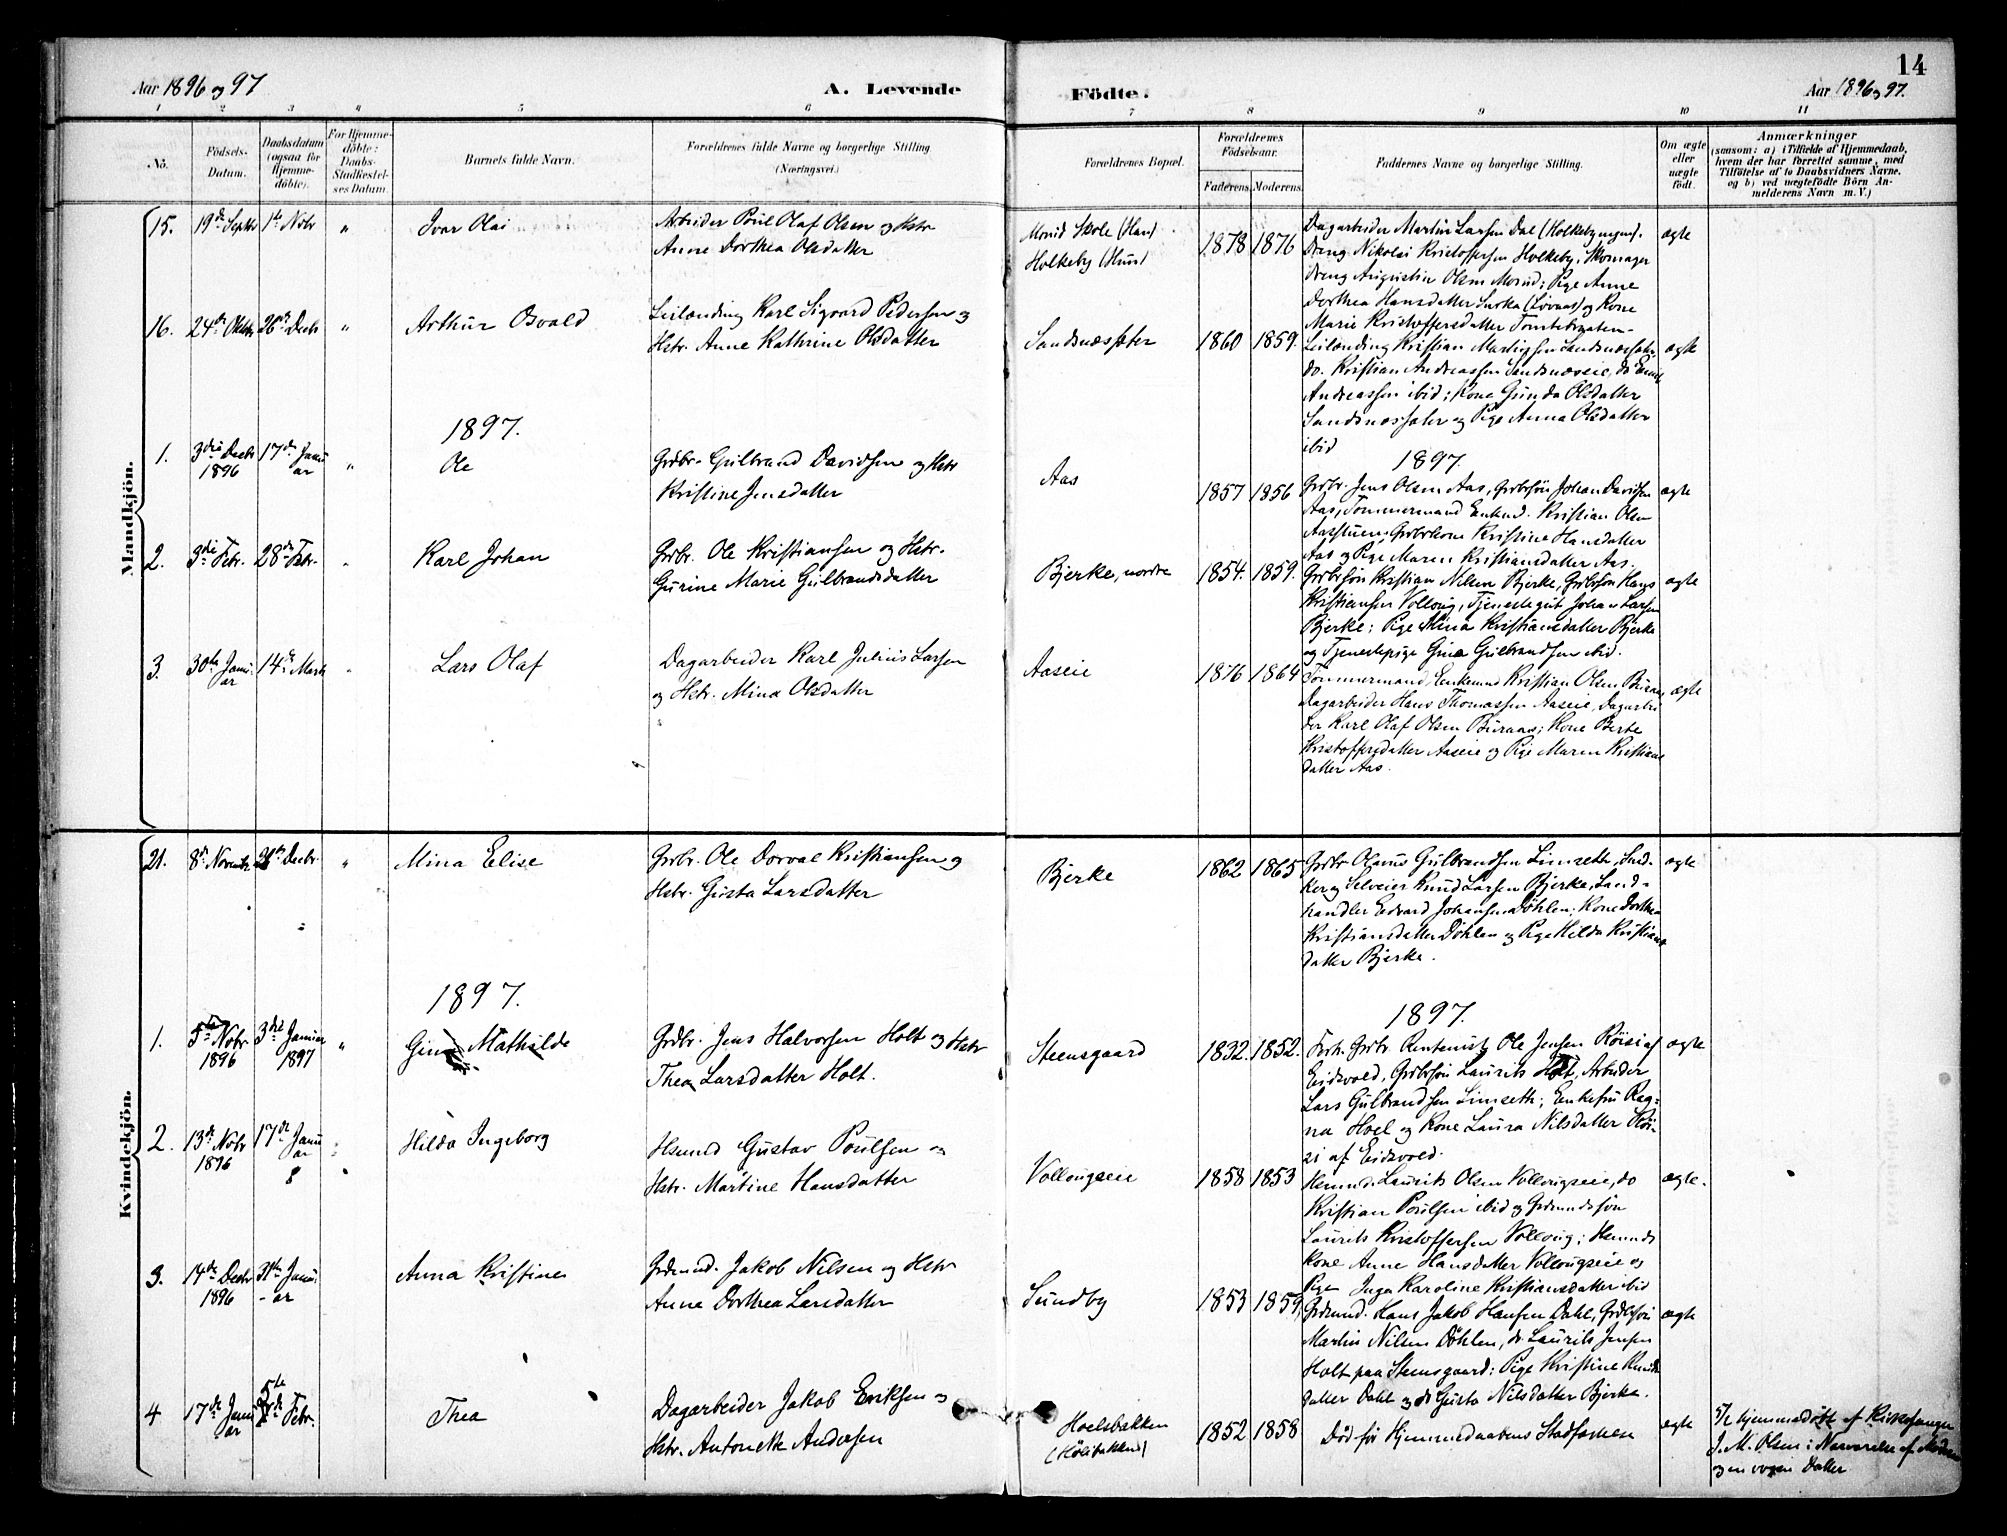 14
Aar 1896 og 97
A. Levende
Födte.
Aar 1896 og 97.
1 2 3 4 5 6 7 8 9 10 11
No.
Födsels-Datum.
Daabsdatum (ogsaa for Hjemmedöbte).
For Hjemmedöbte: Daabs-Stadfestelses Datum.
Barnets fulde Navn.
Forældrenes fulde Navne og borgerlige Stilling
(Næringsvei.)
Forældrenes Bopæl.
Forældrenes Födselsaar.
Faderens. Moderens.
Faddernes Navne og borgerlige Stilling.
Om ægte eller uægte födt.
Anmærkninger
(saasom: a) i Tilfælde af Hjemmedaab,
hvem der har forrettet samme, med
Tilföielse af to Daabsvidners Navne.
og b) ved uægtefödte Börn Anmelderens Navn m. V.)
Mandkjön.
15. 19de Septbr 1ste Nobr " Ivar Olai
Arbeider Poul Olaf Olsen og Hstr
Anne Dorthea Olsdatter
Morud Skole (Han)
Holkeby (Hun)
1873 1876
Dagarbeider Martin Larsen Dal (Holkebyeugen).
Dreng Nikolai Kristoffersen Holkeby, Skomager
dreng Augustin Olsen Morud; Pige Anne
Dorthea Hansdatter og Kone
Marie Kristoffersdatter
ægte
16. 24de Oktbr 26de Decbr " Arthur Osvald
Leilænding Karl Sigvard Pedersen og
Hstr. Anne Kathrine Olsdatter
Sandnæssæter
1860 1859.
Leilænding Kristian Martinsen Sandnæssæter
do. Kristian Andreassen Sandnæseie, do Emil
Andreassen ibid; Kone Gunda Olsdatter
Sandsnæssæter og Pige Anna Olsdatter
ibid
ægte
1897.
1897.
1. 3die Decbr 1896 17de Januar " Ole
Grdbr. Gulbrand Davidsen og Hstr
Kristine Jensdatter
Aas
1857 1856
Grdbr. Jens Olsen Aas, Grdbrsön Johan Davidsen
Aas, Tömmermand Enkmd. Kristian Olsen
Aasstuen, Grdbrkone Kristine Hansdatter
Aas og Pige Maren Kristiansdatter Aas.
ægte
2. 3die Febr. 28de Febr. " Karl Johan
Grdbr. Ole Kristiansen og Hstr.
Gurine Marie Gulbrandsdatter
Bjerke, nordre
1854. 1859.
Grdbrsön Kristian Nilsen Bjerke, Grdbrsön Hans
Kristiansen Vollaug, Tjenestegut Johan Larsen
Bjerke; Pige Mina Kristiansdatter Bjerke
og Tjenestepige Gina Gulbrandsen ibid.
ægte
3. 30te Januar 14de Marts " Lars Olaf
Dagarbeider Karl Julius Larsen
og Hstr. Mina Olsdatter
Aaseie
1876 1864
Tömmermand, Enkemd Kristian Olsen Buraas,
Dagarbeider Hans Thomassen Aaseie, Dagarbei
der Karl Olaf Olsen Buraas; Kone Berte
Kristoffersdatter Aaseie og Pige Maren Kristians
datter Aas.
ægte
Kvindekjön.
21. 8de Novembr 26de Decbr. " Mina Elise
Grdbr. Ole Dorval Kristiansen og
Hstr. Gusta Larsdatter
Bjerke
1862 1865
Grdbr Olaus Gulbrandsen Limseth, Sned-
ker og Selveier Knud Larsen Bjerke, Land-
handler Edvard Johansen Döhlen; Kone Dorthea
Kristiansdatter Döhlen og Pige Hilda Kristians
datter Bjerke.
ægte
1897.
1897.
1. 5te Nobr. 1896 3die Januar 1897 " Gina Mathilde
Grdbr. Jens Halvorsen Holt og Hstr
Thea Larsdatter Holt.
Steensgaard
1832. 1852.
Forh. Grdbr. Rentenist Ole Jensen Röisi af
Eidsvold, Grdbrsön Laurits Holt, Arbeider
Lars Gulbrandsen Limseth; Enkefru Rag-
na Hoel og Kone Laura Nilsdatter Röi-
si af Eidsvold.
ægte
2. 13de Nobr 1896 17de Januar " Hilda Ingeborg
Hsmd Gustav Poulsen og
Hstr. Martine Hansdatter
Vollaugseie
1858 1853
Hsmnd. Laurits Olsen Vollaugseie, do
Kristian Poulsen ibid og Grdmandssön
Laurits Kristoffersen Vollaug; Hsmnds
kone Anne Hansdatter Vollaugseie og
Pige Inga Karoline Kristiansdatter ibid
ægte.
3. 14de Decbr 1896 31te Januar " Anna Kristine
Grdmnd. Jakob Nilsen og Hstr
Anne Dorthea Larsdatter
Sundby
1853 1859,
Grdmand. Hans Jakob Hansen Dahl, Grdbrsön
Martin Nilsen Döhlen, do Laurits Jensen
Holt paa Steensgaard; Pige Kristine Knuds
datter Dahl og do Gusta Nilsdatter Bjerke.
ægte
4 17de Januar 5te Febr. Thea
Dagarbeider Jakob Eriksen og
Hstr. Antonette Andersen
Hoelsbakken
1852 1858
Död för Hjemmedaabens Stadfæstelse
ægte
5/2 hjemmedöbt af Kirkesanger
J. M. Olsen i Nærværelse af Moderen
og en voxen Datter